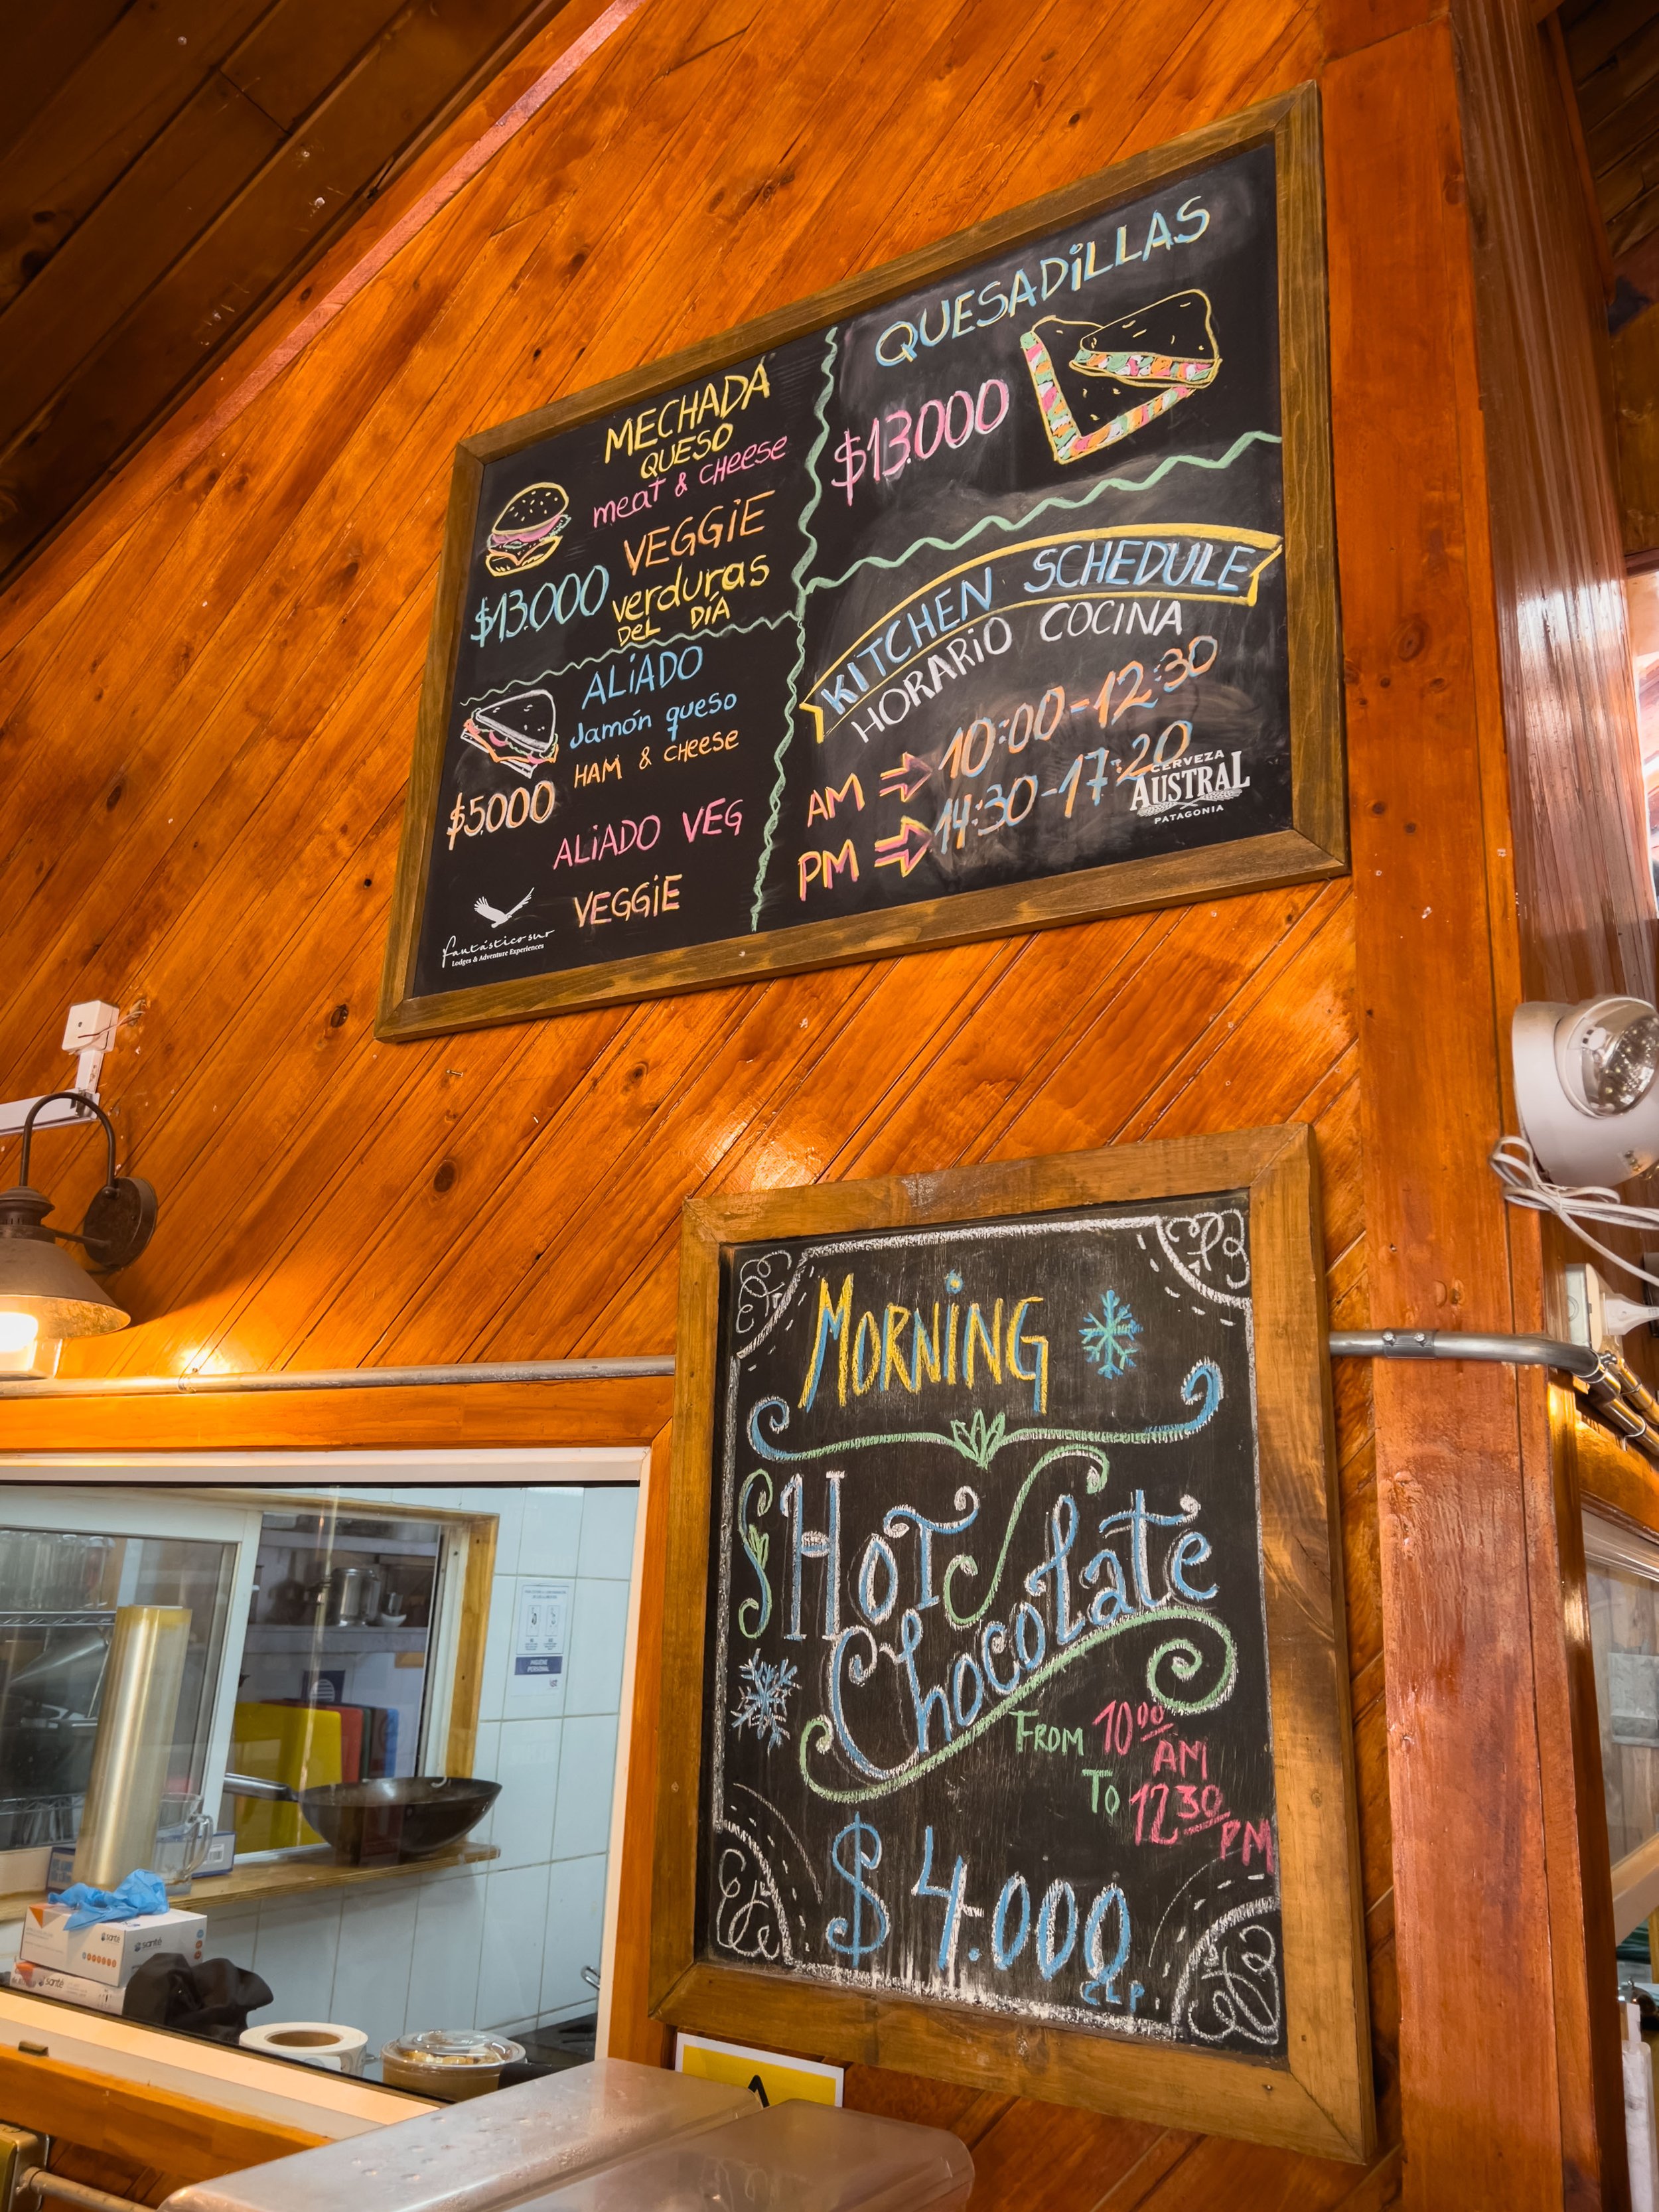 MECHADA
QUESO
meat & cheese
VEGGiE
$13.000
verduras
DEL DÍA
ALiADO
Jamón queso
HAM & cheese
$5.000
ALiADO VEG
VEGGiE
fantástico sur
Lodges & Adventure Experiences
QUESADiLLAS
$13.000
KITCHEN SCHEDULE
HORARiO COCINA
AM 10:00-12:30
PM 14:30-17:20
CERVEZA
AUSTRAL
PATAGONIA
MORNiNG
HoT
Chocolate
FROM 10:00
AM
To 12:30
PM
$4.000
CLP
HIGIENE
PERSONAL
santé
santé